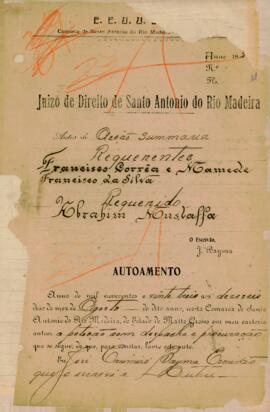 E. E. U. U.
Comarca de Santo Antonio do Rio Madeira
Anno 19
Nº
Fls.
Juizo de Direito de Santo Antonio do Rio Madeira
Autos de Acção Summaria
Requerentes
Francisco Corrêa e Mamede
Francisco da Silva
Requerido
Abrahim Mustaffa
O Escrivão,
J. Dayma
AUTOAMENTO
Anno de mil novecentos e vinte tres aos dezeseis
dias do mez de Agosto do dito anno, nesta Comarca de Santo
Antonio do Rio Madeira, do Estado de Matto Grosso em meu cartorio
autoei a petição com despacho e procuração
que se segue; do que, para constar, lavro este auto.
Eu, José Dayma Escrivão